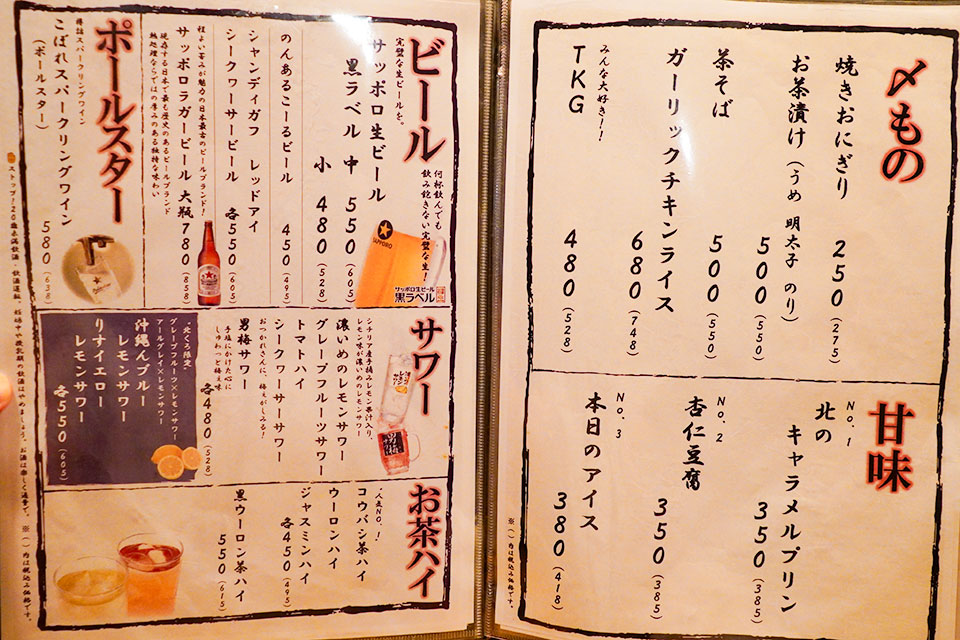 〆もの
焼きおにぎり 250 (275)
お茶漬け(うめ 明太子 のり)
500 (550)
茶そば 500 (550)
ガーリックチキンライス 680 (748)
みんな大好きー!
TKG 480 (528)
甘味
No.1
北の
キャラメルプリン 350 (385)
No.2
杏仁豆腐 350 (385)
No.3
本日のアイス 380 (418)
※( )内は税込み価格です。
ビール
何杯飲んでも
飲み飽きない完璧な生!
完璧な生ビールを。
サッポロ生ビール
黒ラベル 中 550 (605)
小 480 (528)
SAPPORO
サッポロ生ビール
黒ラベル
のんあるこーるビール 450 (495)
シャンディガフ レッドアイ
シークワーサービール 各550 (605)
程よい苦みが魅力の日本最古のビールブランド!
サッポロラガービール 大瓶 780 (858)
現存する日本で最も歴史のあるビールブランド
熱処理ならではの厚みのある独特な味わい
ポールスター
樽詰スパークリングワイン
こぼれスパークリングワイン 580 (638)
(ポールスター)
サワー
シチリア産手摘みレモン果汁入り、
レモン味が濃いめのレモンサワー
濃いめのレモンサワー
グレープフルーツサワー
トマトハイ
シークワーサーサワー
おつかれさんに、梅えがしみる!
男梅サワー
手塩にかけた心に
しゅわっと梅え味
各480 (528)
"北くろ限定"
グレープフルーツ×レモンサワー
アールグレイ×レモンサワー
沖縄んブルー
レモンサワー
りすイエロー
レモンサワー
各550 (605)
お茶ハイ
"人気NO.!
コウバシ茶ハイ
ウーロンハイ
ジャスミンハイ
各450 (495)
黒ウーロン茶ハイ
550 (615)
ストップ!20歳未満飲酒・飲酒運転。妊娠中や授乳期の飲酒はやめましょう。お酒は楽しく適量で。
※( )内は税込み価格です。